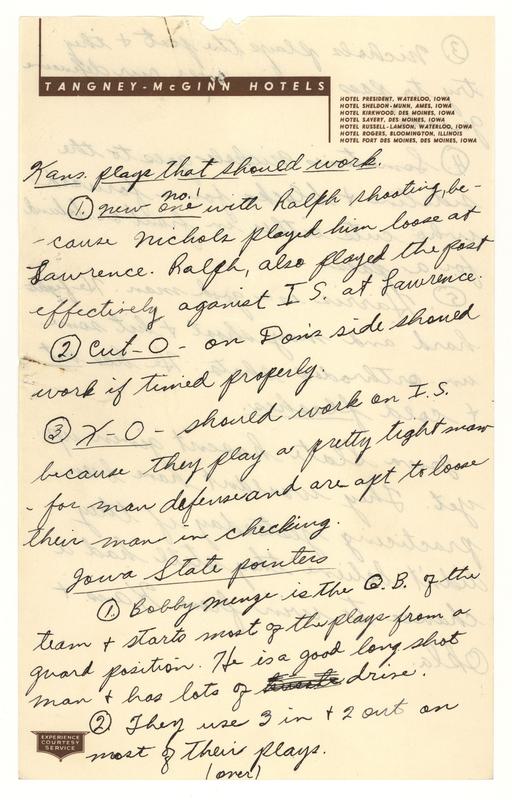 TANGNEY-McGINN HOTELS
HOTEL PRESIDENT, WATERLOO, IOWA
HOTEL SHELDON-MUNN, AMES, IOWA
HOTEL KIRKWOOD, DES MOINES, IOWA
HOTEL SAVERY, DES MOINES, IOWA
HOTEL RUSSELL-LAMSON, WATERLOO, IOWA
HOTEL ROGERS, BLOOMINGTON, ILLINOIS
HOTEL FORT DES MOINES, DES MOINES, IOWA
Kans. plays that should work.
① New one no. 1 with Ralph shooting, be-
-cause Nichols played him loose at
Lawrence. Ralph, also played the post
effectively aganist I S. at Lawrence.
② Cut-O - on Dons side should
work if timed properly.
③ X-O - should work on I.S.
because they play a pretty tight man
- for man defense and are apt to loose
their man in checking.
Iowa State pointers
① Bobby Menze is the Q.B. of the
team + starts most of the plays from a
guard position. He is a good long shot
man + has lots of drive.
② They use 3 in + 2 out on
most of their plays.
(over)
EXPERIENCE
COURTESY
SERVICE